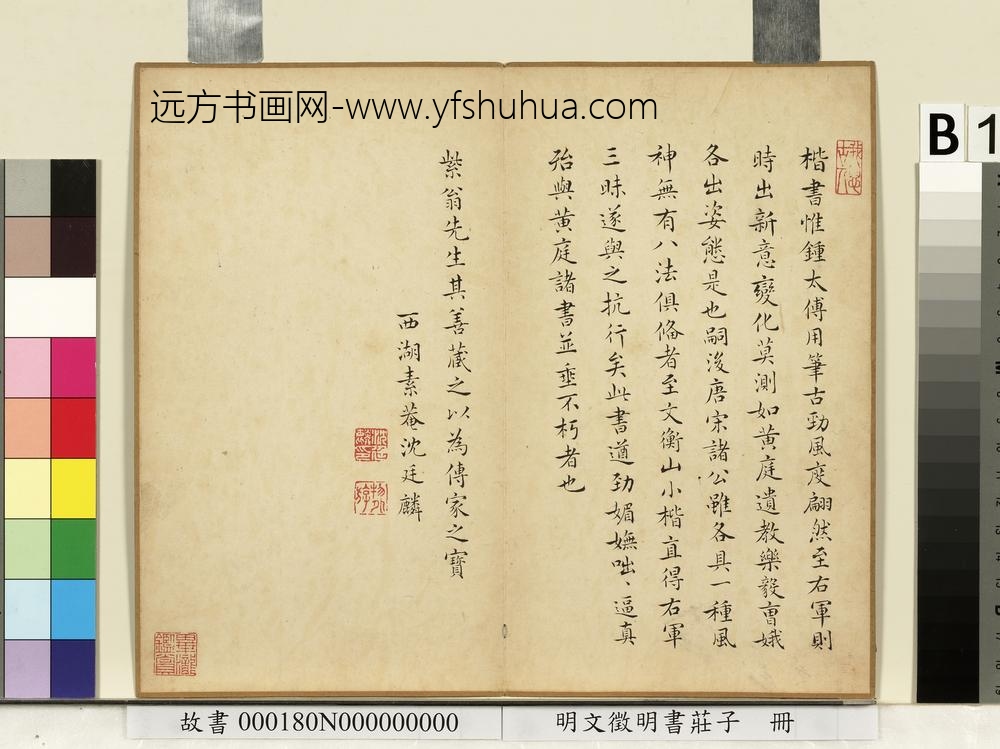 远方书画网-www.yfshuhua.com
B 1
楷書惟鍾太傅用筆古勁風度翩然至右軍則
時出新意變化莫測如黄庭遺教樂毅曹娥
各出姿態是也嗣後唐宋諸公雖各具一種風
神無有八法俱俻者至文衡山小楷直得右軍
三昧遂與之抗行矣此書遒勁媚嫵咄、逼真
殆與黄庭諸書並垂不朽者也
紫翁先生其善藏之以為傳家之寳
西湖素菴沈廷麟
故書 000180N000000000
明文徵明書莊子 冊